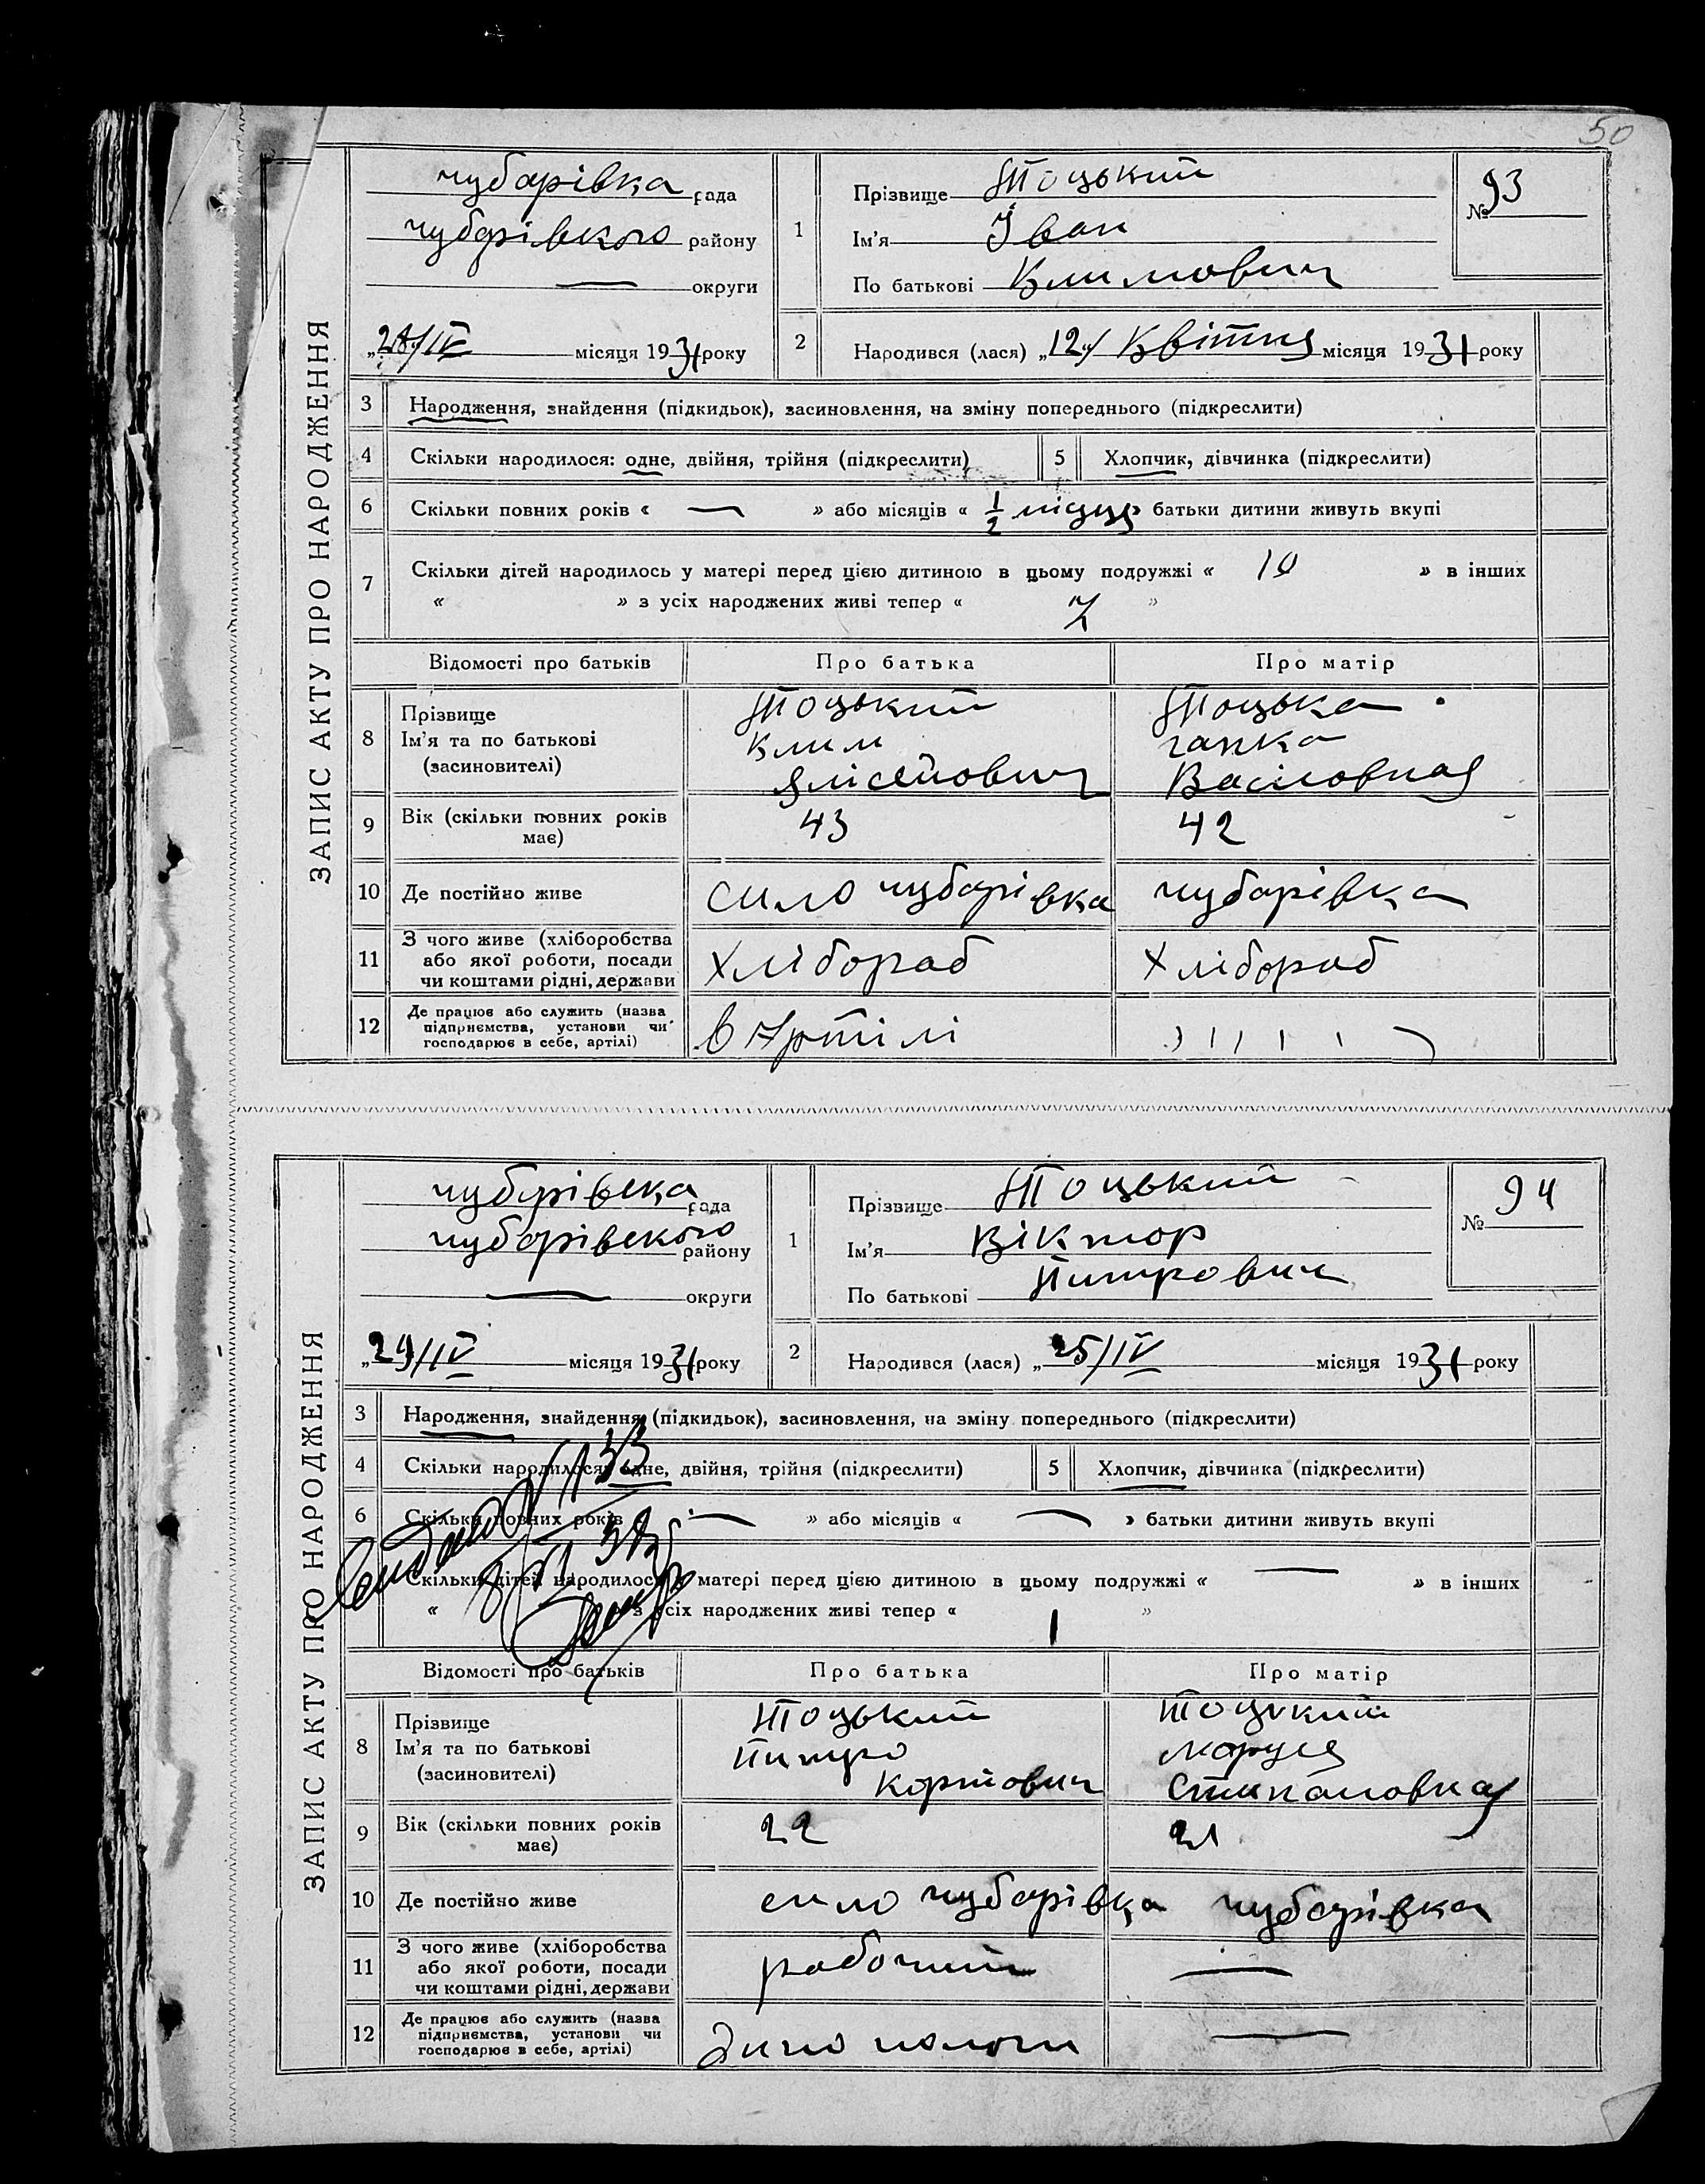 50
ЗАПИС АКТУ ПРО НАРОДЖЕННЯ
чубарівка рада
чубарівского району
— округи
„28/IV місяця 1931 року
1 Прізвище Тоцький
Ім'я Іван
По батькові Климович
№ 93
2 Народився (лася) „12" Квітня місяця 1931 року
3 Народження, знайдення (підкидьок), засиновлення, на зміну попереднього (підкреслити)
4 Скільки народилося: одне, двійня, трійня (підкреслити) 5 Хлопчик, дівчинка (підкреслити)
6 Скільки повних років « — » або місяців « 1/2 місяця батьки дитини живуть вкупі
7 Скільки дітей народилось у матері перед цією дитиною в цьому подружжі « 10 » в інших
« » з усіх народжених живі тепер « 7 »
Відомості про батьків Про батька Про матір
8 Прізвище Ім'я та по батькові (засиновителі)
Тоцький Клим Ялісейович
Тоцька гапка Василовная
9 Вік (скільки повних років має) 43 42
10 Де постійно живе сило чубарівка чубарівка
11 З чого живе (хліборобства або якої роботи, посади чи коштами рідні, держави Хлібораб Хлібораб
12 Де працює або служить (назва підприємства, установи чи господарює в себе, артілі) в Артілі
ЗАПИС АКТУ ПРО НАРОДЖЕННЯ
чубарівска рада
чубарівского району
— округи
„29/IV місяця 1931 року
1 Прізвище Тоцький
Ім'я Віктор
По батькові Питрович
№ 94
2 Народився (лася) „25/IV місяця 1931 року
3 Народження, знайдення (підкидьок), засиновлення, на зміну попереднього (підкреслити)
4 Скільки народилося: одне, двійня, трійня (підкреслити) 5 Хлопчик, дівчинка (підкреслити)
6 Скільки повних років — » або місяців « — » батьки дитини живуть вкупі
Скільки дітей народилось у матері перед цією дитиною в цьому подружжі « — » в інших
« » з усіх народжених живі тепер « 1 »
Відомості про батьків Про батька Про матір
8 Прізвище Ім'я та по батькові (засиновителі)
Тоцький Питро Кортович
Тоцкий Маруся Стипановная
9 Вік (скільки повних років має) 22 21
10 Де постійно живе сило чубарівка чубарівка
11 З чого живе (хліборобства або якої роботи, посади чи коштами рідні, держави рабочий —
12 Де працює або служить (назва підприємства, установи чи господарює в себе, артілі) —